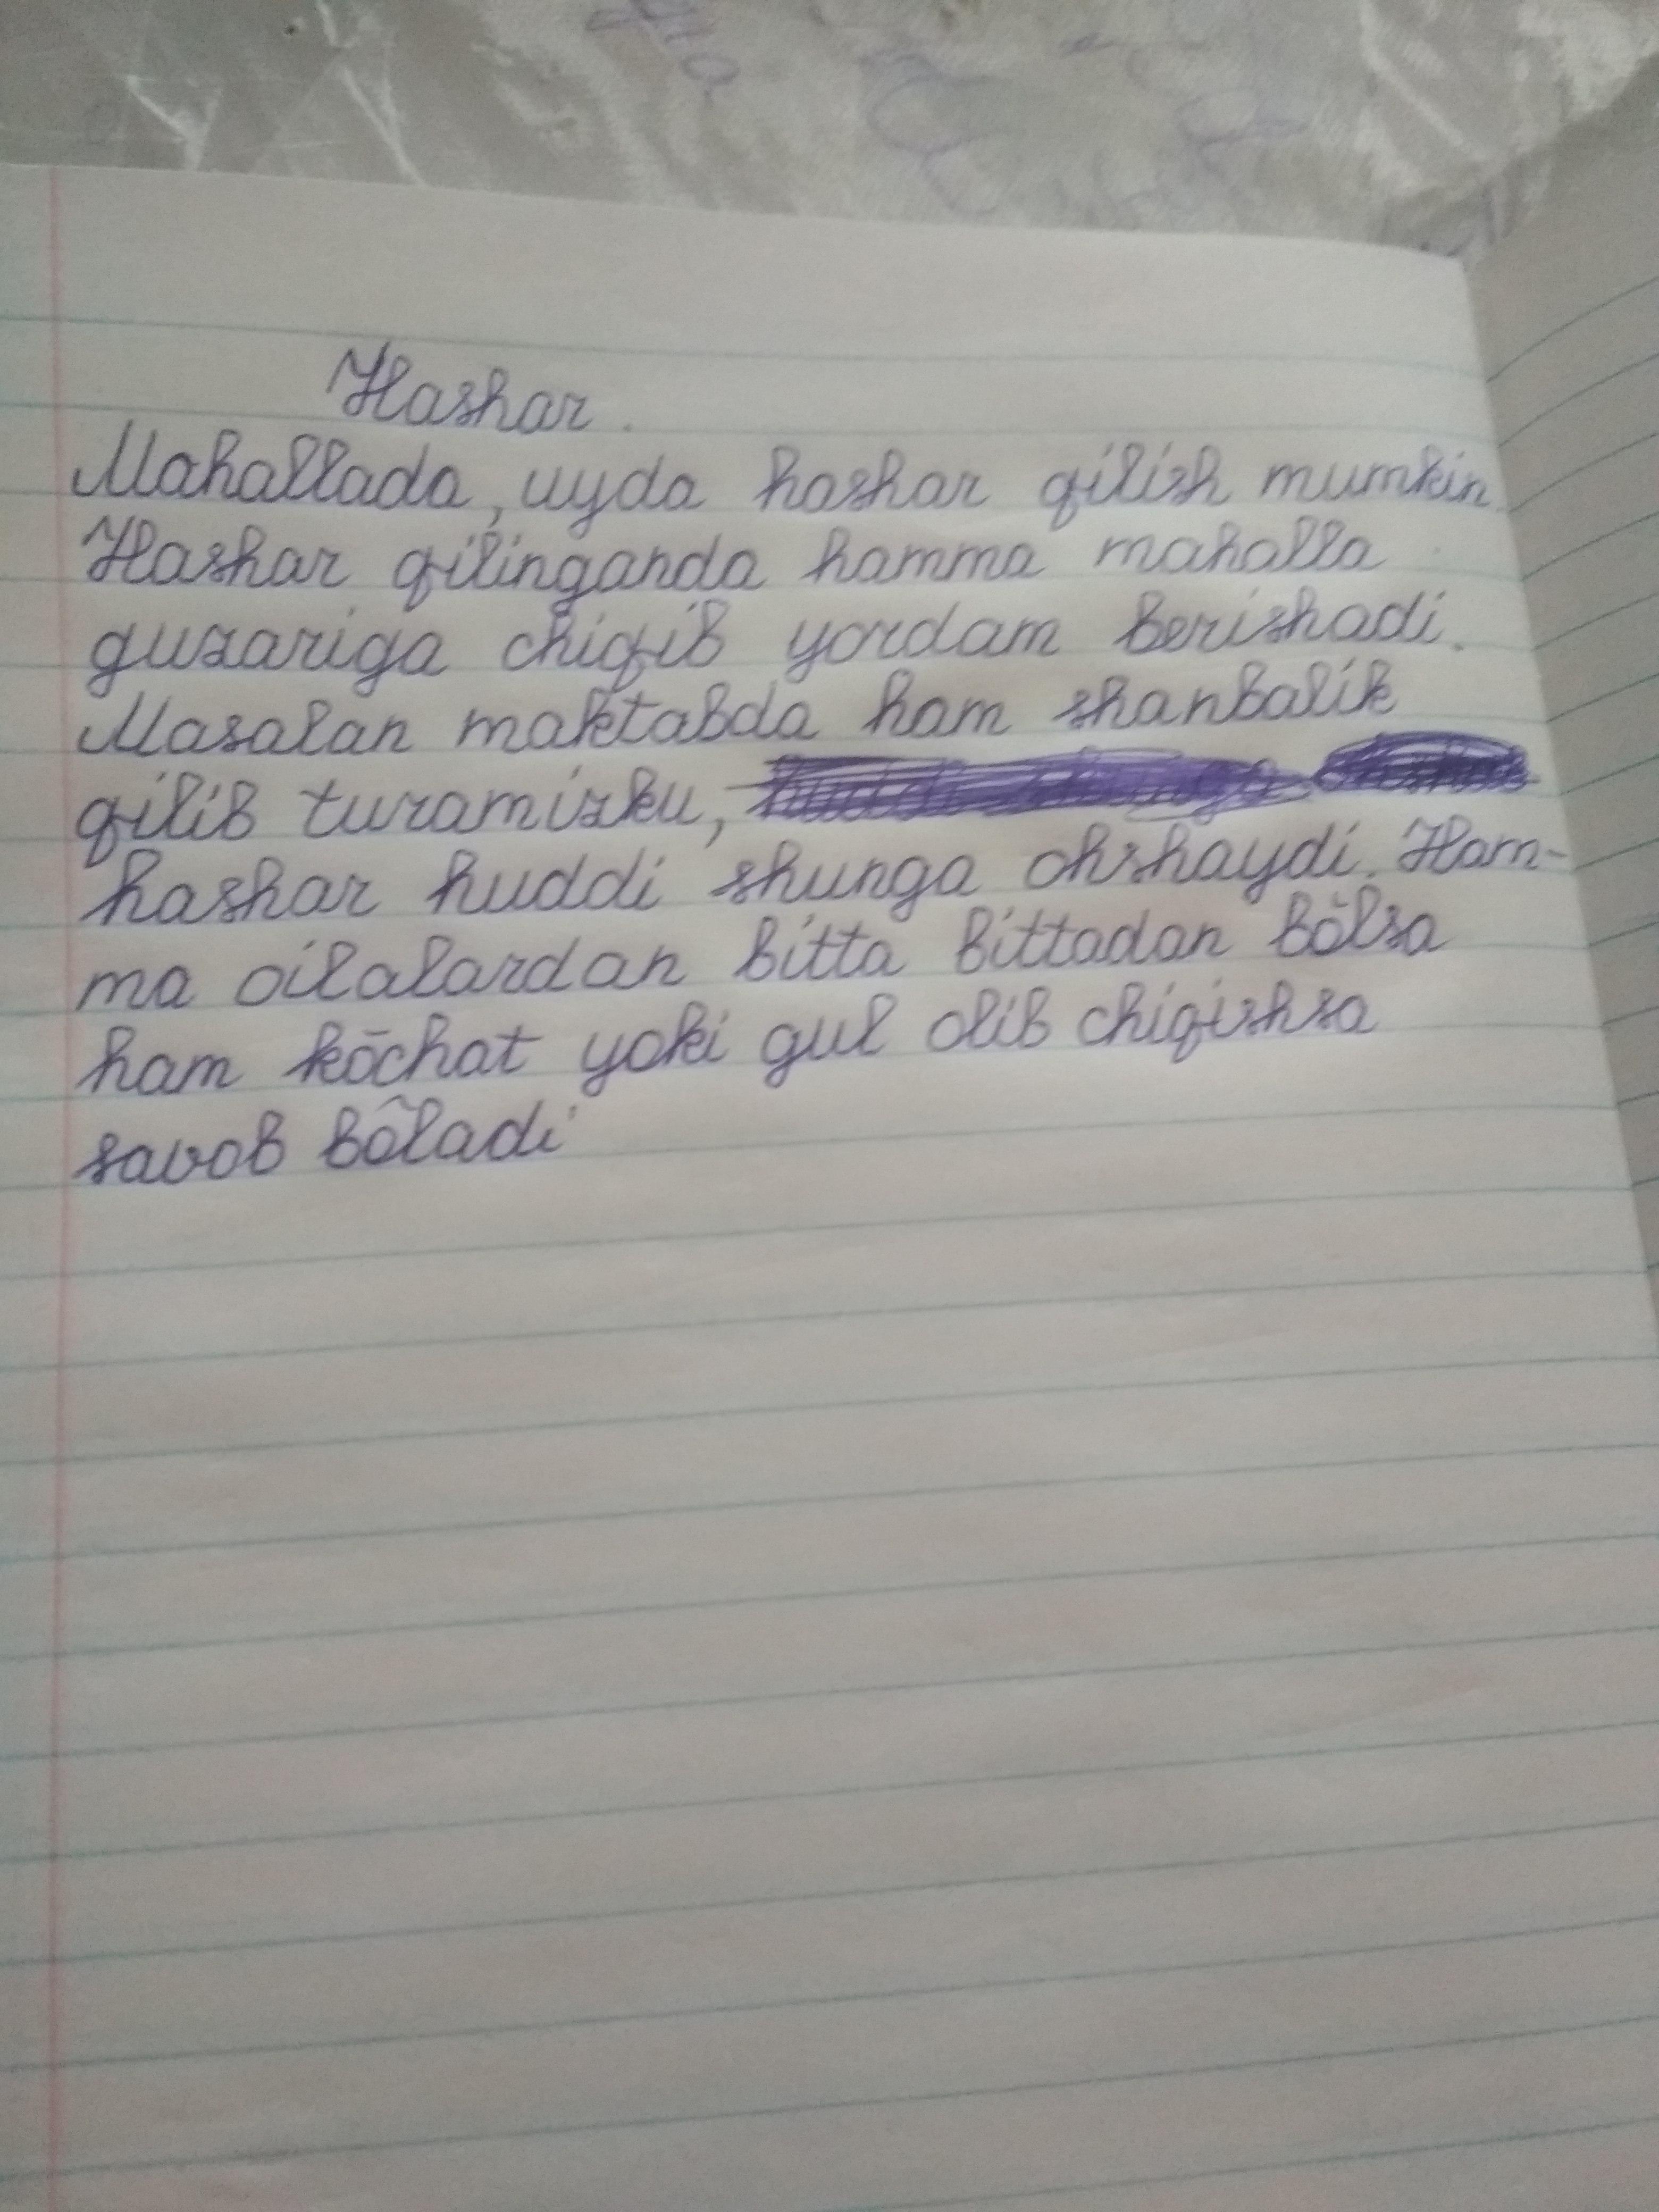 Hashar.
Mahallada, uyda hashar qilish mumkin.
Hashar qilinganda hamma mahalla
guzariga chiqib yordam berishadi.
Masalan maktabda ham shanbalik
qilib turamizku,
hashar huddi shunga ohshaydi. Ham-
ma oilalardan bitta bittadan bŏlsa
ham kōchat yoki gul olib chiqishsa
savob bôladi